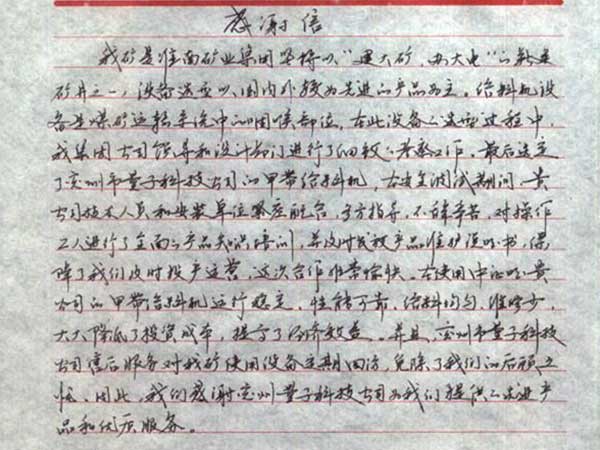 感谢信
我矿是淮南矿业集团坚持以“建大矿，办大电”的新建
矿井之一，设备选型以国内外较为先进的产品为主。给料机设
备是煤矿运转系统中的咽喉部位，在此设备的选型过程中，
我集团公司领导和设计部门进行了细致的考察工作。最后选定
了兖州市量子科技公司的甲带给料机，在安装调试期间，贵
公司技术人员和安装单位紧密配合，多方指导，不辞辛苦，对操作
工人进行了全面的产品知识培训，并及时发放产品维护说明书，保
障了我们及时投产运营，这次合作非常愉快。在使用中证明，贵
公司的甲带给料机运行稳定，性能可靠，给料均匀，维修少，
大大降低了投资成本，提高了经济效益。并且，兖州市量子科技
公司售后服务对我矿使用设备定期回访，免除了我们的后顾之
忧。因此，我们感谢兖州量子科技公司为我们提供的先进产
品和优质服务。